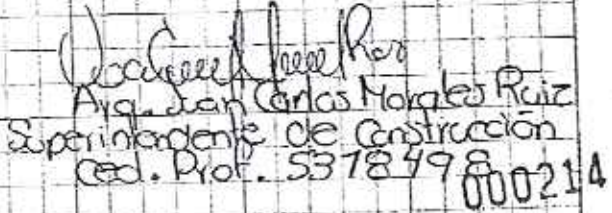 Arq. Juan Carlos Morales Ruiz
Superintendente de Construcción
Ced. Prof. 5378498
000214